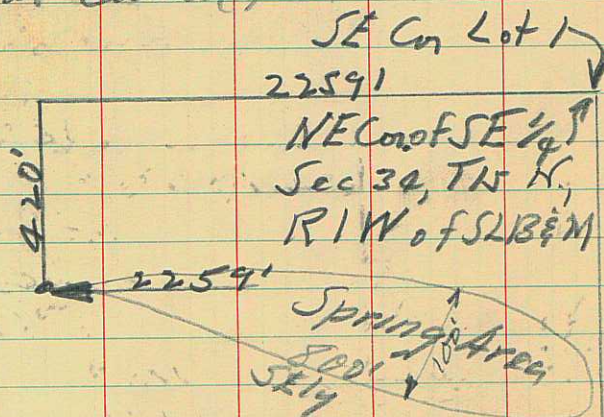 SE Cor Lot 1
2259'
NE Cor of SE 1/4
Sec 34, T15 N,
R1W of SLB&M
420'
2259'
Spring Area
100'
800'
SEly